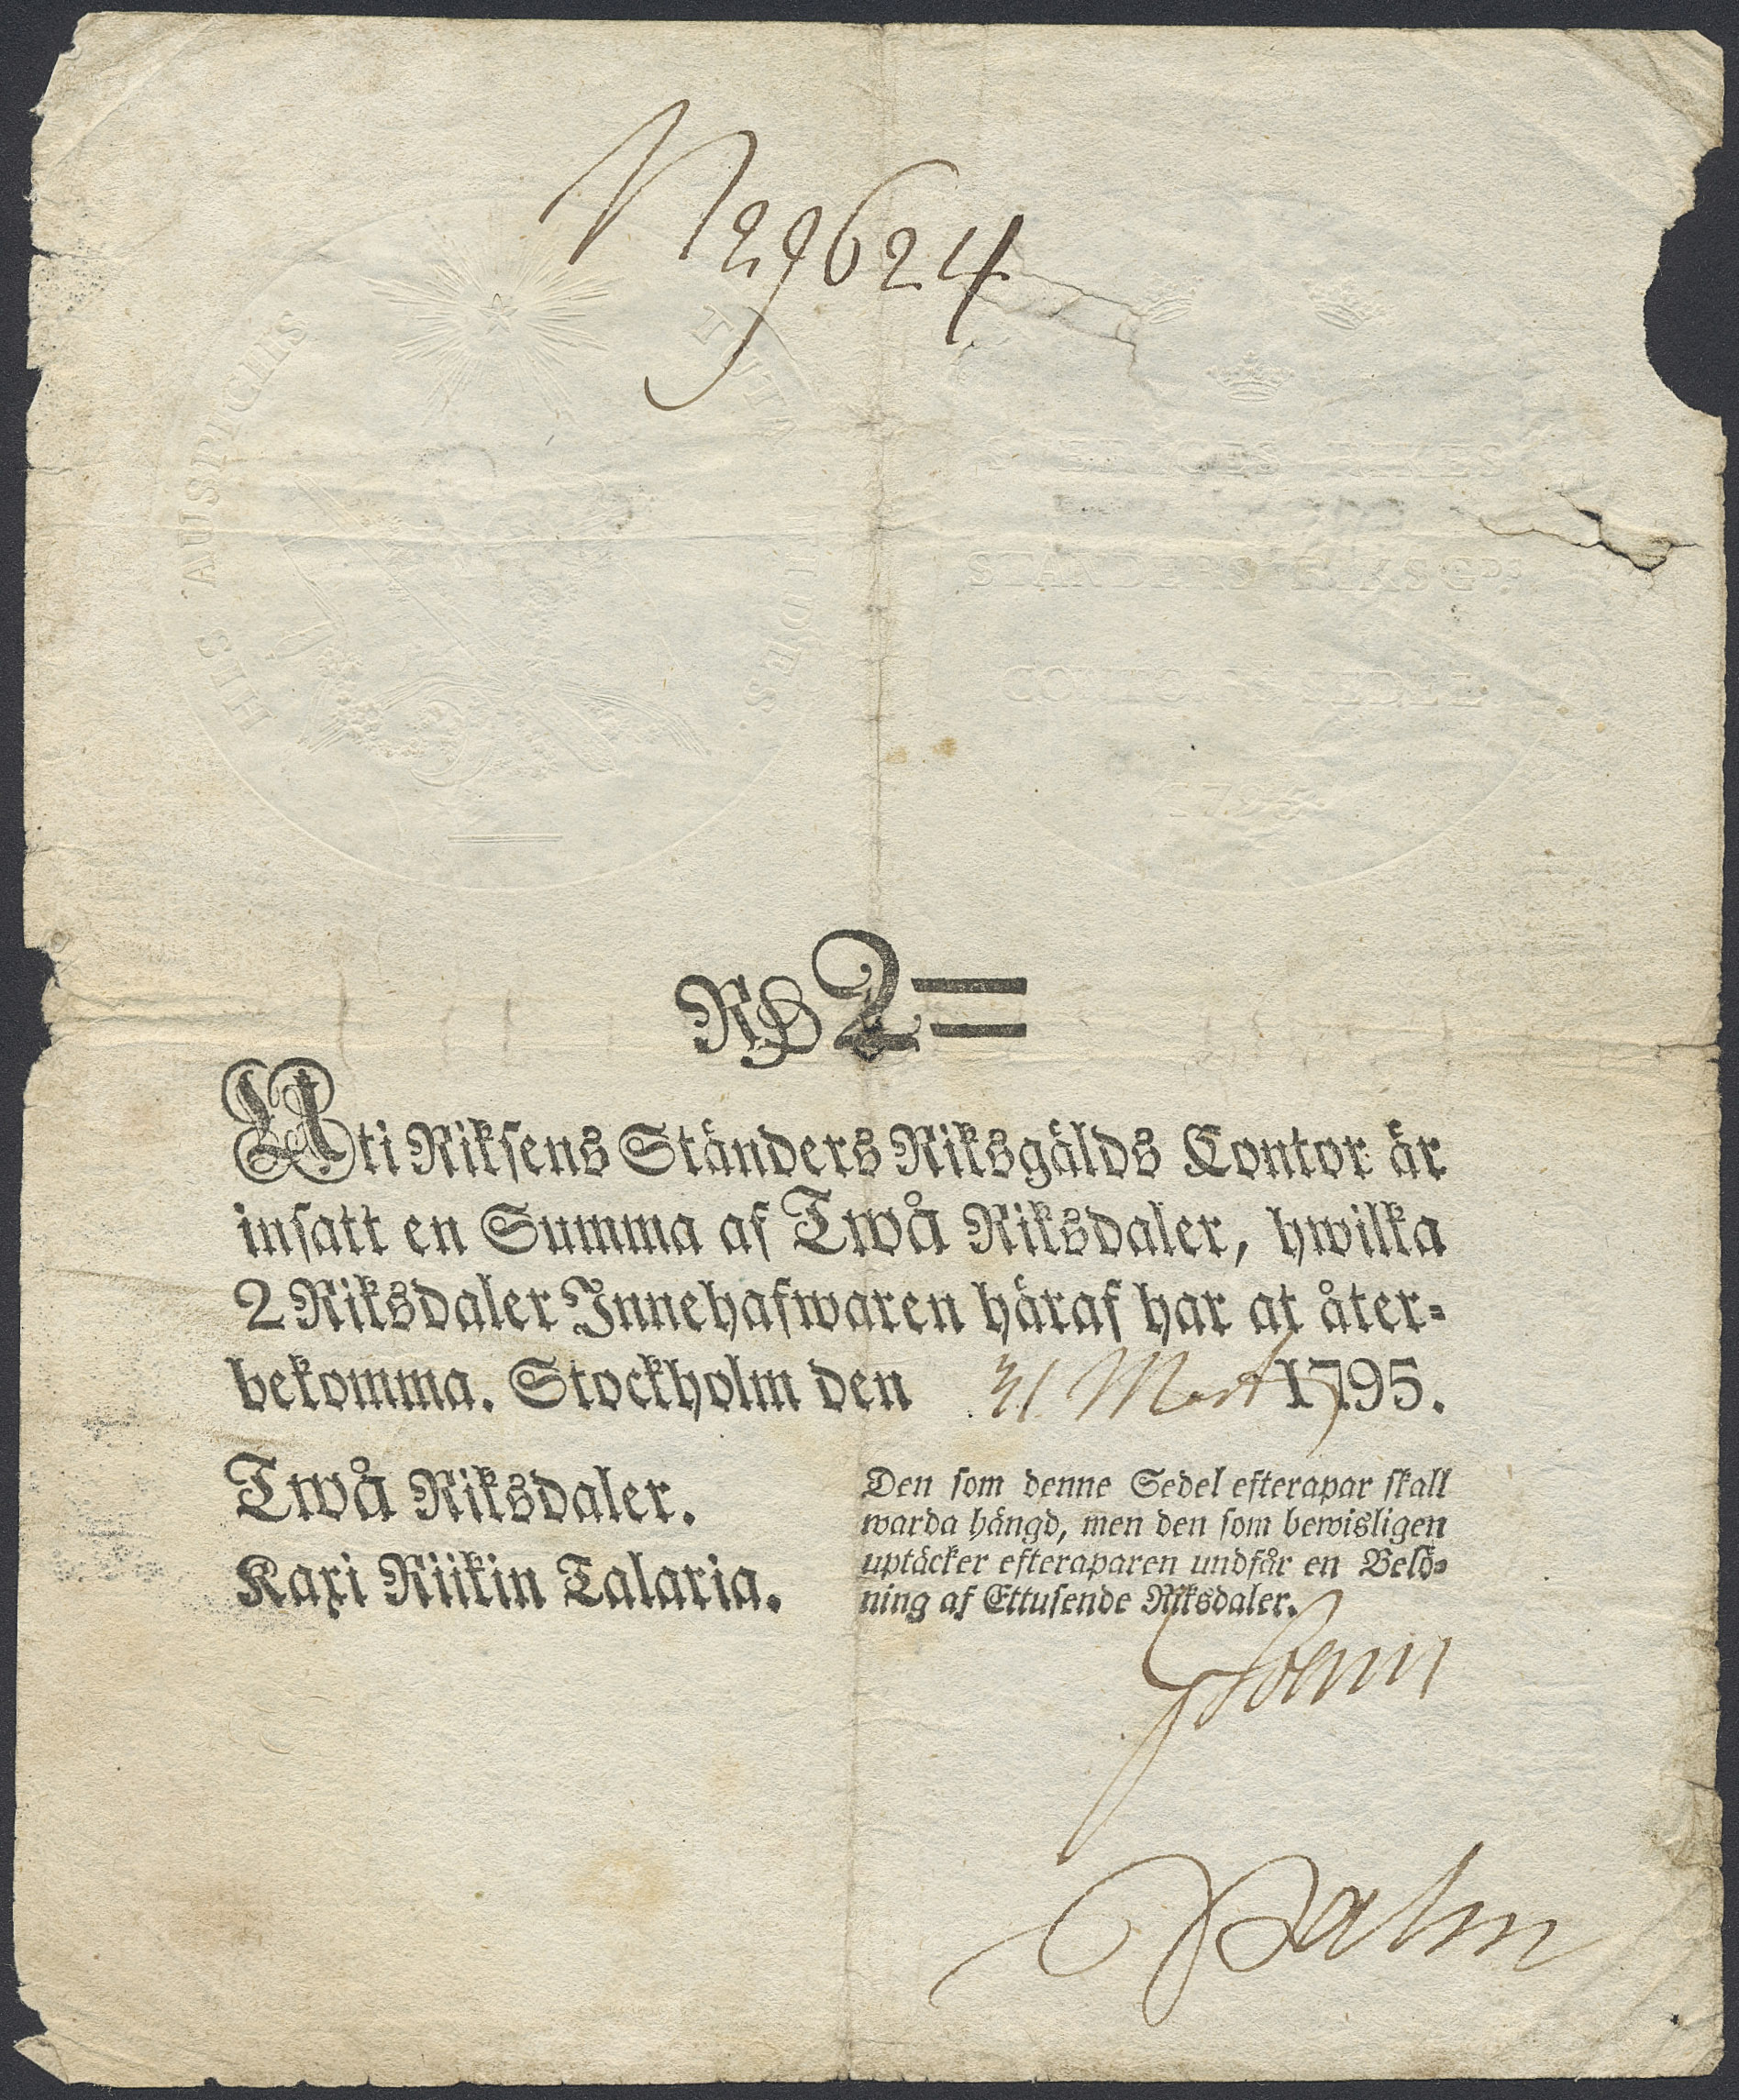 N 29624
HIS AUSPICIIS TUTA
SVERIGES RIKES
STÄNDERS RIKSGDS
CONTORS SEDEL
179
RD 2=
Uti Riksens Ständers Riksgälds Contor är
insatt en Summa af Twå Riksdaler, hwilka
2 Riksdaler Innehafwaren häraf har at åter=
bekomma. Stockholm den 31 Mart 1795.
Twå Riksdaler.
Kaxi Riikin Talaria.
Den som denne Sedel efterapar skall
warda hängd, men den som bewisligen
uptäcker efteraparen undfår en Belö=
ning af Ettusende Riksdaler.
Palm